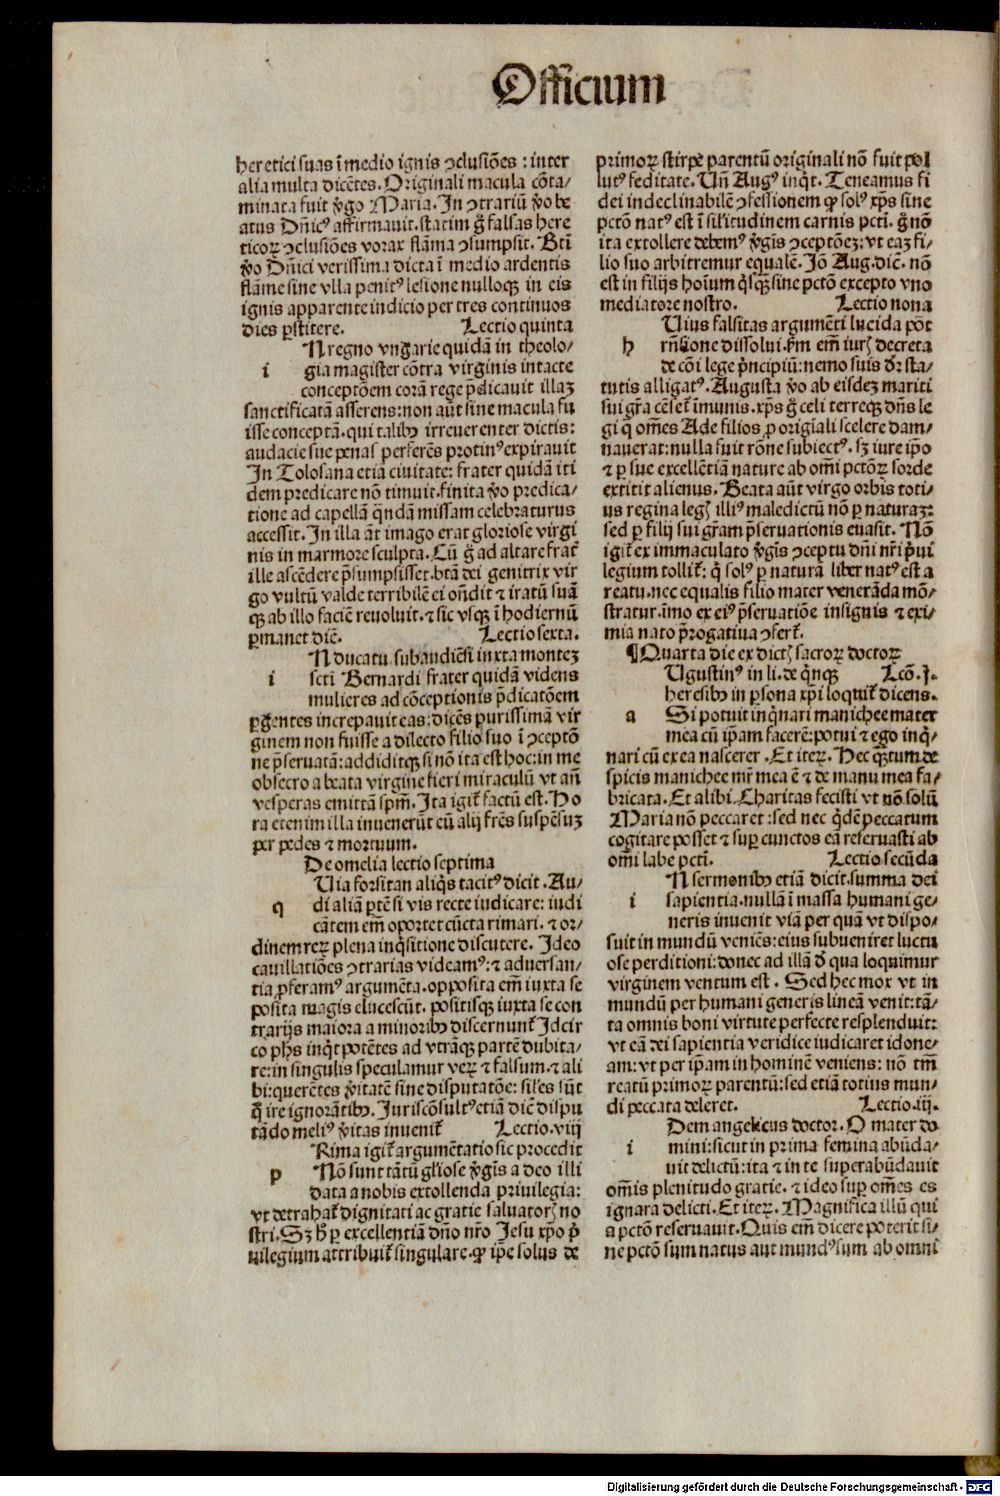 Officium
heretici suas ī medio ignis ꝯclusiōes : inter
alia multa dicētes. Originali macula cōta/
minata fuit v̔go Maria. In ꝯtrariū v̔o be
atus Dñicꝰ affirmauit. statim g̃ falsas here
ticoꝝ ꝯclusiōes vorax flāma ꝯsumpsit. Btī
v̔o Dñici verissima dicta ī medio ardentis
flāme sine vlla penitꝰ lesione nulloqꝫ in eis
ignis apparente indicio per tres continuos
dies ꝑstitere. Lectio quinta
N regno vngarie quidā in theolo/
i gia magister cōtra virginis intacte
conceptōem corā rege p̄dicauit illaꝫ
sanctificatā asserens: non aūt sine macula fu
isse conceptā. qui talibꝫ irreuerenter dictis:
audacie sue penas perferēs protinꝰ expirauit
In Tolosana etiā ciuitate: frater quidā iti
dem predicare nō timuit. finita v̔o predica/
tione ad capellā q̄ndā missam celebraturus
accessit. In illa āt imago erat gloriose virgi
nis in marmore sculpta. Cū g̃ ad altare frat̃
ille ascēdere p̄sumpsisset. btā dei genitrix vir
go vultū valde terribilē ei oñdit ⁊ iratū suā
qꝫ ab illo faciē reuoluit. ⁊ sic vsqꝫ ī hodiernū
ꝑmanet diē. Lectio sexta.
N ducatu subaudiēsi iuxta montez
i scti Bernardi frater quidā videns
mulieres ad cōceptionis p̄dicatōem
ꝑgentes increpauit eas: dicēs purissimā vir
ginem non fuisse a dilecto filio suo ī ꝯceptō
ne p̄seruatā: addiditqꝫ si nō ita est hoc: in me
obsecro a beata virgine fieri miraculū vt añ
vesperas emittā spm̄. Ita igit̃ factū est. Ho
ra etenim illa inuenerūt eū alij frēs suspēsuꝫ
per pedes ⁊ mortuum.
De omelia lectio septima
Uia forsitan aliq̄s tacitꝰ dicit. Au/
q di aliā ꝑtē si vis recte iudicare: iudi
cātem em̄ oportet cūcta rimari. ⁊ or/
dinem reꝝ plena inq̄sitione discutere. Ideo
cauillatiōes ꝯtrarias videamꝰ: ⁊ aduersan/
tia ꝓferamꝰ argumēta. opposita em̄ iuxta se
posita magis elucescūt. positisqꝫ iuxta se con
trarijs maiora a minoribꝫ discernunt̃ Idcir
co phs inq̄t potētes ad vtrāqꝫ partē dubita/
re: in singulis speculamur veꝝ ⁊ falsum. ⁊ ali
bi: querētes v̔itatē sine disputatōe: siles sūt
q̄ ire ignorātibꝫ. Iuriscōsultꝰ etiā diē dispu
tādo meliꝰ v̔itas inuenit̃ Lectio.viij
Rima igit̃ argumētatio sic procedit
p Nō sunt tātū gl̄iose v̔gīs a deo illi
data a nobis extollenda priuilegia:
vt detrahat̃ dignitati ac gratie saluatorꝭ no
stri. Sꝫ hꝫ ꝑ excellentiā dño nr̄o Jesu xp̄o p̔
uilegium attribuit̃ singulare. ꝙ ip̄e solus de
primoꝝ stirpe parentū originali nō fuit pol
lutꝰ feditate. Uñ Augꝰ inq̄t. Teneamus fi
dei indeclinabilē ꝯfessionem ꝙ solꝰ xp̄s sine
pctō natꝰ est ī sil̄itudinem carnis pcti. g̃ nō
ita extollere debemꝰ v̔gīs ꝯceptōeꝫ: vt eaꝫ fi/
lio suo arbitremur equalē. Jō Aug. diē. nō
est in filijs hoīum q̄sqꝫ sine pctō excepto vno
mediatore nostro. Lectio nona
Uius falsitas argumēti lucida pōt
h rñsione dissolui. ẜm em̄ iurꝭ decreta
de cōi lege p̔ncipiū: nemo suis dr̄ sta/
tutis alligatꝰ. Augusta v̔o ab eisdeꝫ mariti
sui gr̄a cēset̃ īmunis. xp̄s g̃ celi terreqꝫ dñs le
gi q̄ om̄es Ade filios ꝓ origīali scelere dam/
nauerat: nulla fuit rōne subiectꝰ. sꝫ iure ip̄o
⁊ ꝑ sue excellētiā nature ab om̄i pctōꝝ sorde
extitit alienus. Beata aūt virgo orbis toti/
us regina legꝭ illiꝰ maledictū nō ꝑ naturaꝫ:
sed ꝑ filij sui gr̄am p̄seruationis euasit. Nō
igit̃ ex immaculato v̔gīs ꝯceptu dñi nr̄i p̔ui
legium tollit̃: q̄ solꝰ ꝑ naturā liber natꝰ est a
reatu. nec equalis filio mater venerāda mō/
stratur. īmo ex eiꝰ p̄seruatiōe insignis ⁊ exi/
mia nato p̄rogatiua ꝯfert̃.
¶Quarta die ex dictꝭ sacroꝝ doctoꝝ
Ugustinꝰ in li. de q̄nqꝫ Lcō.j.
heresibꝫ in ꝑsona xp̄i loquit̃ dicens.
a Si potuit inq̄nari manichee mater
mea cū ip̄am facerē: potui ⁊ ego inq̄/
nari cū ex ea nascerer. Et iteꝝ. Hec quātum de
spicis manichee mr̄ mea ē ⁊ de manu mea fa/
bricata. Et alibi. Charitas fecisti vt nō solū
Maria nō peccaret: sed nec q̄dē peccatum
cogitare posset ⁊ suꝑ cunctos eā reseruasti ab
om̄i labe pcti. Lectio secūda
N sermonibꝫ etiā dicit. summa dei
i sapientia. nullā ī massa humani ge/
neris inuenit viā per quā vt dispo/
suit in mundū veniēs: eius subueniret luctu
ose perditioni: donec ad illā d̄ qua loquimur
virginem ventum est. Sed hec mox vt in
mundū per humani generis lineā venit: tā/
ta omnis boni virtute perfecte resplenduit:
vt eā dei sapientia veridice iudicaret idone/
am: vt per ip̄am in hominē veniens: nō tm̄
reatū primoꝝ parentū: sed etiā totius mun/
di peccata deleret. Lectio.iij.
Dem angelicus doctor. O mater do
i mini: sicut in prima femina abūda/
uit delictū: ita ⁊ in te superabūdauit
om̄is plenitudo gratie. ⁊ ideo suꝑ om̄es es
ignara delicti. Et iteꝝ. Magnifica illū qui
a pctō reseruauit. Quis em̄ dicere poterit si/
ne pctō sum natus aut mundꝰ sum ab omni
Digitalisierung gefördert durch die Deutsche Forschungsgemeinschaft - DFG